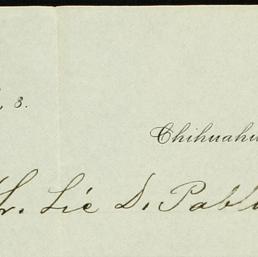 3.
Chihuahu
Sr. Lic D. Pabl